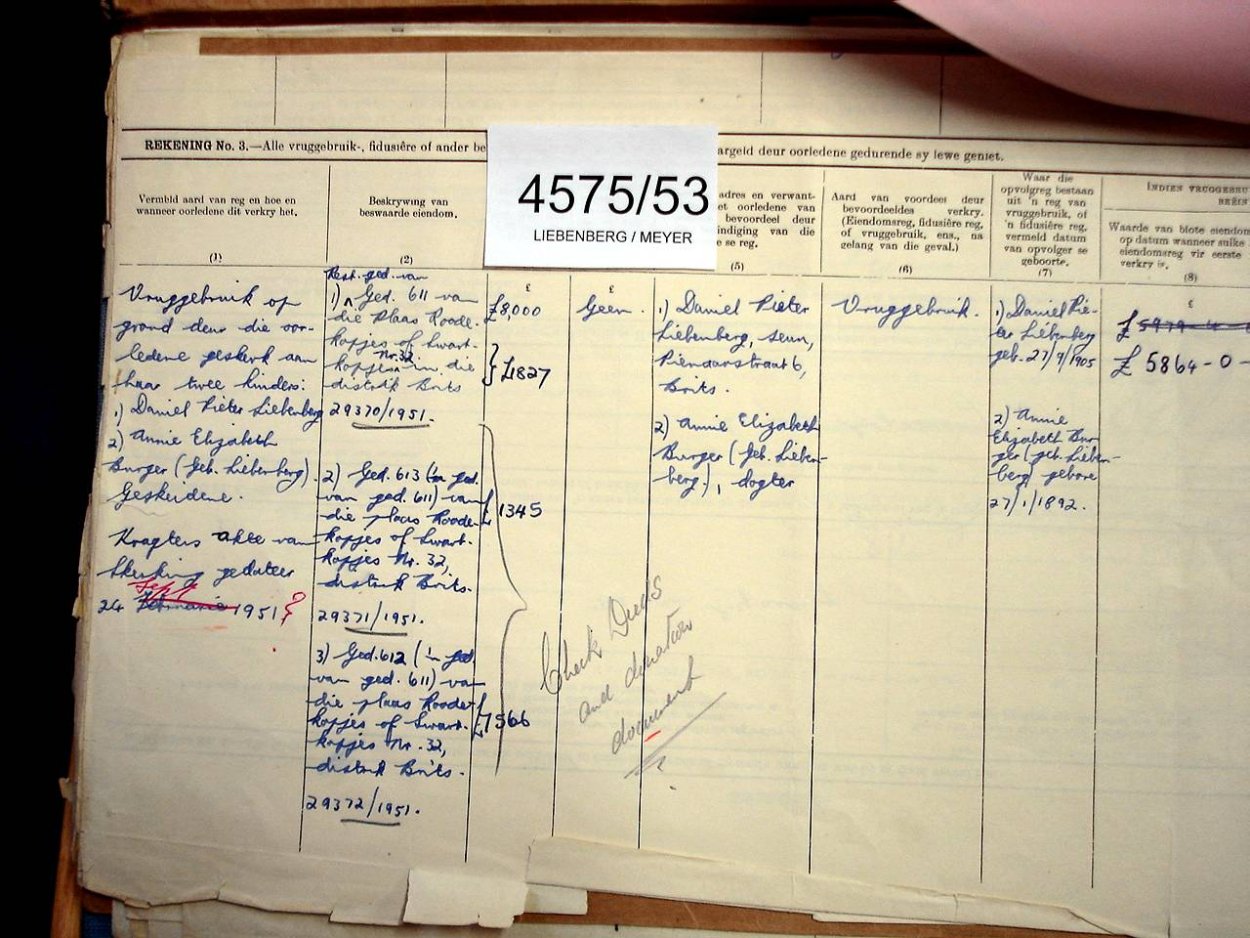 REKENING No. 3.—Alle vruggebruik-, fidusiêre of ander be
argeld deur oorledene gedurende sy lewe geniet.
4575/53
LIEBENBERG / MEYER
Vermeld aard van reg en hoe en
wanneer oorledene dit verkry het.
(1)
Beskrywing van
beswaarde eiendom.
(2)
adres en verwant-
et oorledene van
bevoordeel deur
indiging van die
e se reg.
(5)
Aard van voordeel deur
bevoordeeldes verkry.
(Eiendomsreg, fidusiêre reg,
of vruggebruik, ens., na
gelang van die geval.)
(6)
Waar die
opvolgreg bestaan
uit 'n reg van
vruggebruik, of
'n fidusiêre reg,
vermeld datum
van opvolger se
geboorte.
(7)
INDIEN VRUGGEBRU
Waarde van blote eiendom
op datum wanneer sulke
eiendomsreg vir eerste
verkry is.
(8)
Vruggebruik op
grond deur die oor-
ledene geskenk aan
haar twee kinders:
1) Daniel Pieter Liebenberg
2) Annie Elizabeth
Burger (Geb. Liebenberg).
Geskeidene.
akte van
skenking gedateer
Sept
24 Februarie 1951 ?
Rest. ged. van
1) Ged. 611 van
die Plaas Roode-
kopjes of Swart-
kopjes Nr. 32 in die
distrik Brits
29370/1951.
2) Ged. 613 ('n ged.
van ged. 611) van
die plaas Roode-
kopjes of Swart-
kopjes Nr. 32,
distrik Brits.
29371/1951.
3) Ged. 612 ('n ged.
van ged. 611) van
die plaas Roode-
kopjes of Swart-
kopjes Nr. 32,
distrik Brits.
29372/1951.
£
£8,000
£1827
£1345
£7566
£
Geen.
1) Daniel Pieter
Liebenberg, seun,
Pienaarstraat 6,
Brits.
2) Annie Elizabeth
Burger (Geb. Lieben-
berg.), dogter
Vruggebruik.
1) Daniel Pie-
ter Liebenberg
geb. 27/9/1905
2) Annie
Elizabeth Bur-
ger (geb. Lieben-
berg) gebore
27/1/1892.
£
£ 5864-0-
Check Deeds
and donation
document